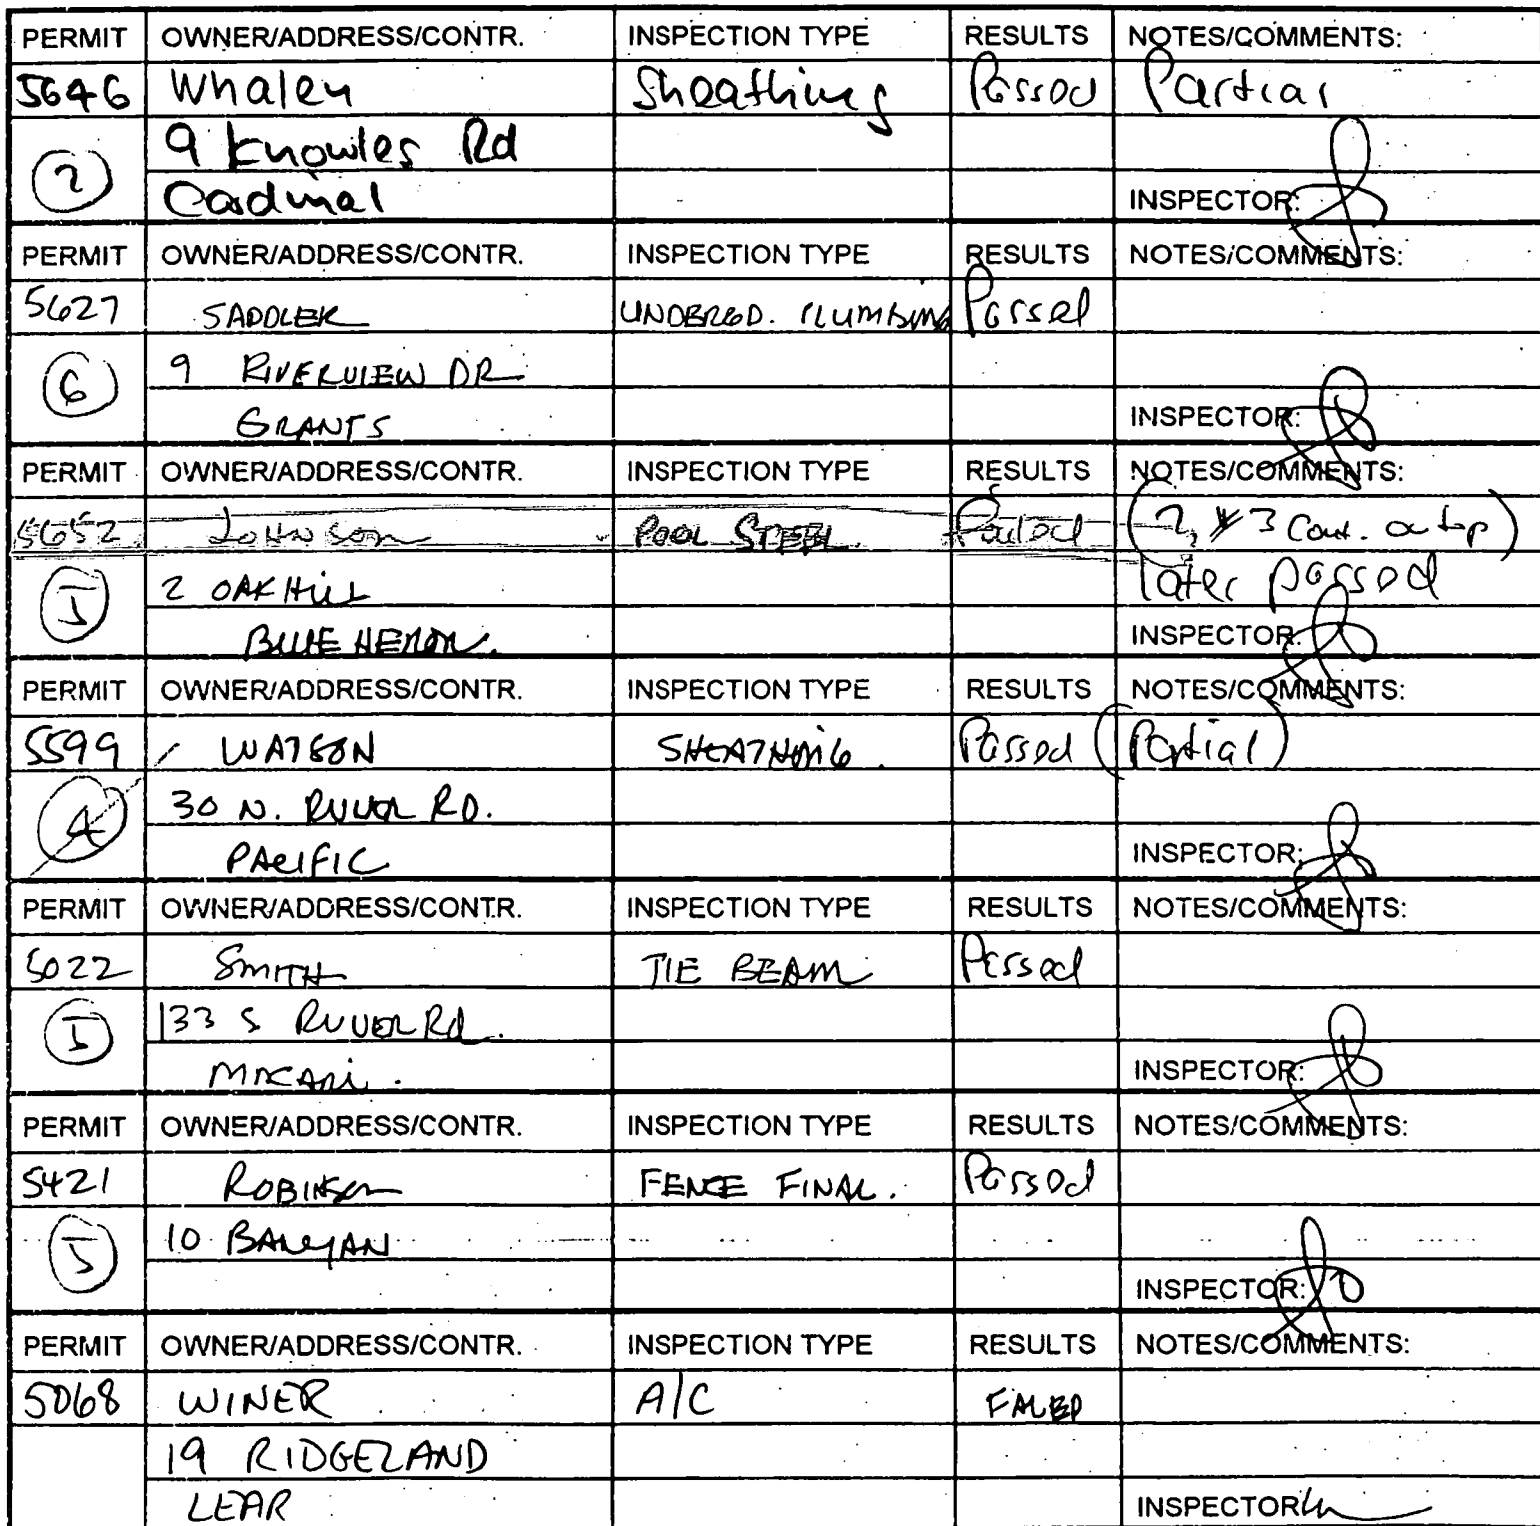 PERMIT OWNER/ADDRESS/CONTR. INSPECTION TYPE RESULTS NOTES/COMMENTS:
5646 Whalen Sheathing Passed Partial
9 Knowles Rd
2
Cardinal INSPECTOR:
PERMIT OWNER/ADDRESS/CONTR. INSPECTION TYPE RESULTS NOTES/COMMENTS:
5627 SADDLER UNDERGD. PLUMBING Passed
9 RIVERVIEW DR
6
GRANTS INSPECTOR:
PERMIT OWNER/ADDRESS/CONTR. INSPECTION TYPE RESULTS NOTES/COMMENTS:
5652 JOHNSON POOL STEEL Failed (2, #3 Cont. on top)
2 OAK HILL later passed
BLUE HERON. INSPECTOR:
PERMIT OWNER/ADDRESS/CONTR. INSPECTION TYPE RESULTS NOTES/COMMENTS:
5599 WATSON SHEATHING. Passed (Partial)
30 N. RIVER RD.
4
PACIFIC INSPECTOR:
PERMIT OWNER/ADDRESS/CONTR. INSPECTION TYPE RESULTS NOTES/COMMENTS:
5022 SMITH TIE BEAM Passed
133 S RIVER Rd.
INSPECTOR:
PERMIT OWNER/ADDRESS/CONTR. INSPECTION TYPE RESULTS NOTES/COMMENTS:
5421 ROBINSON FENCE FINAL. Passed
10 BANYAN
INSPECTOR:
PERMIT OWNER/ADDRESS/CONTR. INSPECTION TYPE RESULTS NOTES/COMMENTS:
5068 WINER A/C FAILED
19 RIDGELAND
LEAR INSPECTOR